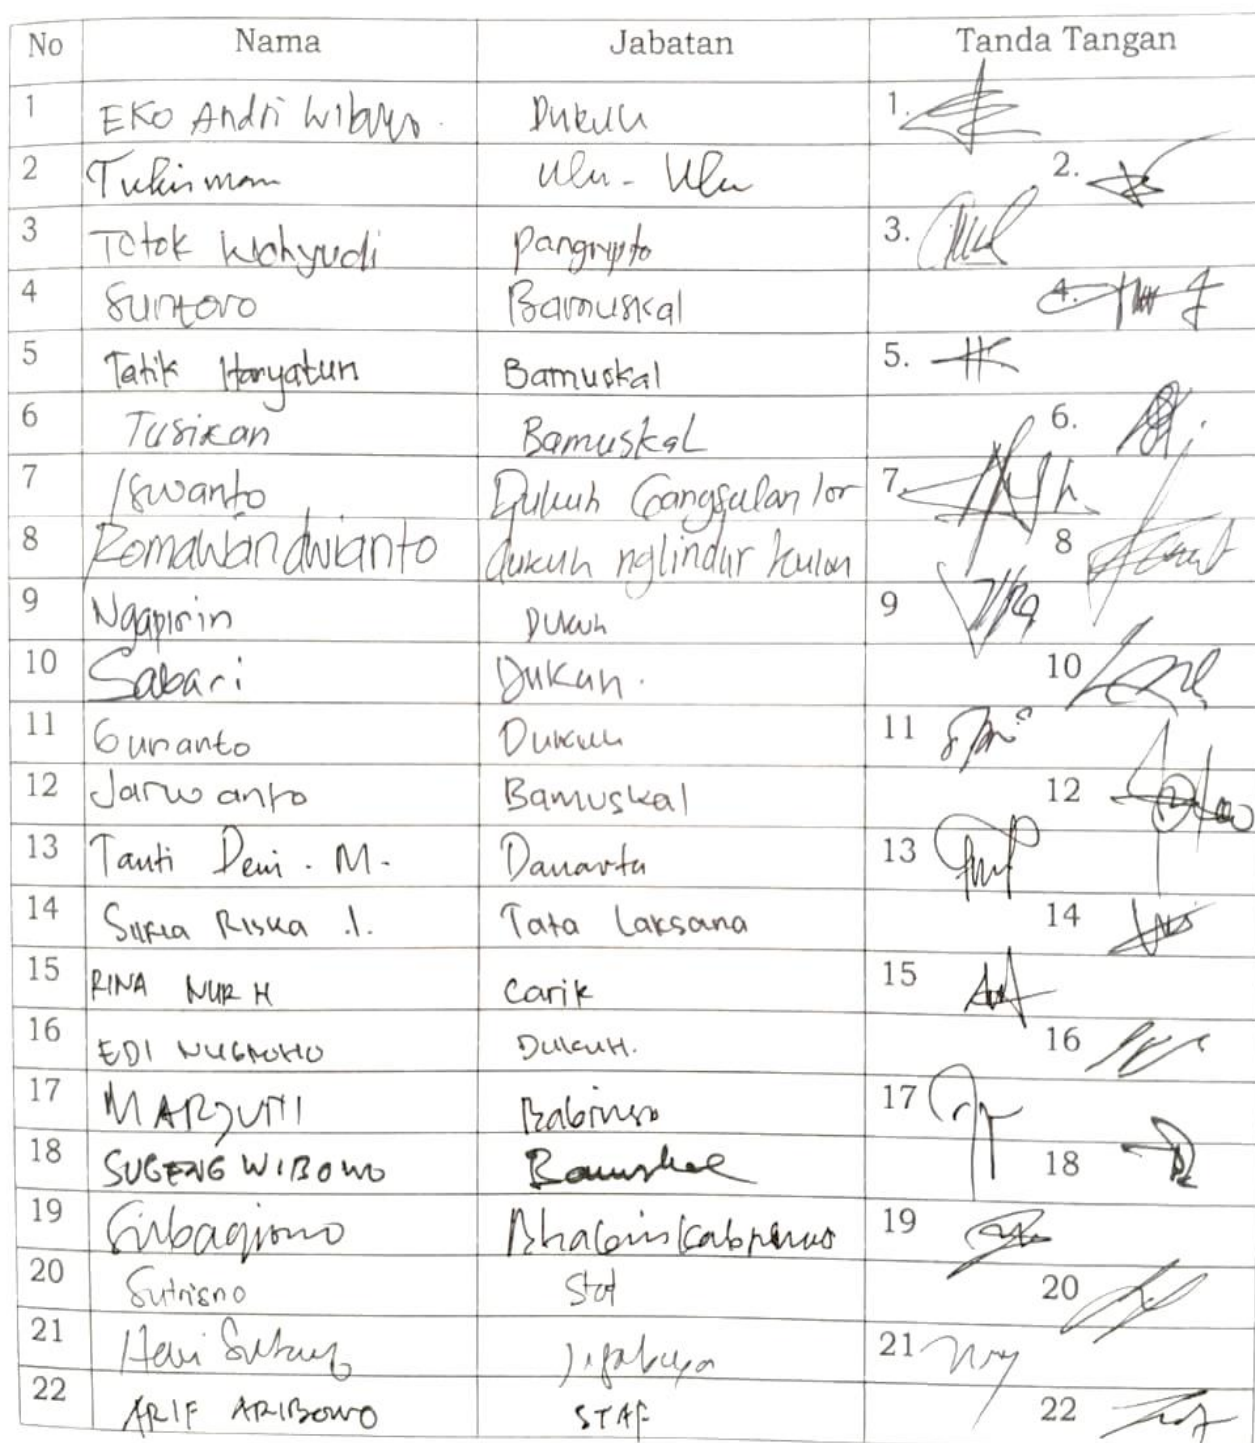 No Nama Jabatan Tanda Tangan
1 EKO Andri Wibowo. Dukuh 1.
2 Tukiman Ulu - Ulu 2.
3 Totok Wahyudi Pangripto 3.
4 Suntoro Bamuskal 4.
5 Tatik Haryatun Bamuskal 5.
6 Tusikan Bamuskal 6.
7 Iswanto Dukuh Gangsalan lor 7.
8 Romawan dwianto dukuh nglindur kulon 8
9 Ngapirin Dukuh 9
10 Sabari Dukuh. 10
11 Gunanto Dukuh 11
12 Jarwanto Bamuskal 12
13 Tanti Dewi. M. Danarta 13
14 Riska .I. Tata Laksana 14
15 RINA NUR H Carik 15
16 EDI NUGROHO DUKUH. 16
17 MARJUNI Babinsa 17
18 SUGENG WIBOWO Bamuskal 18
19 Subagiono Bhabinkabtibmas 19
20 Sutrisno Staf 20
21 Heri 21
22 ARIF ARIBOWO STAF 22